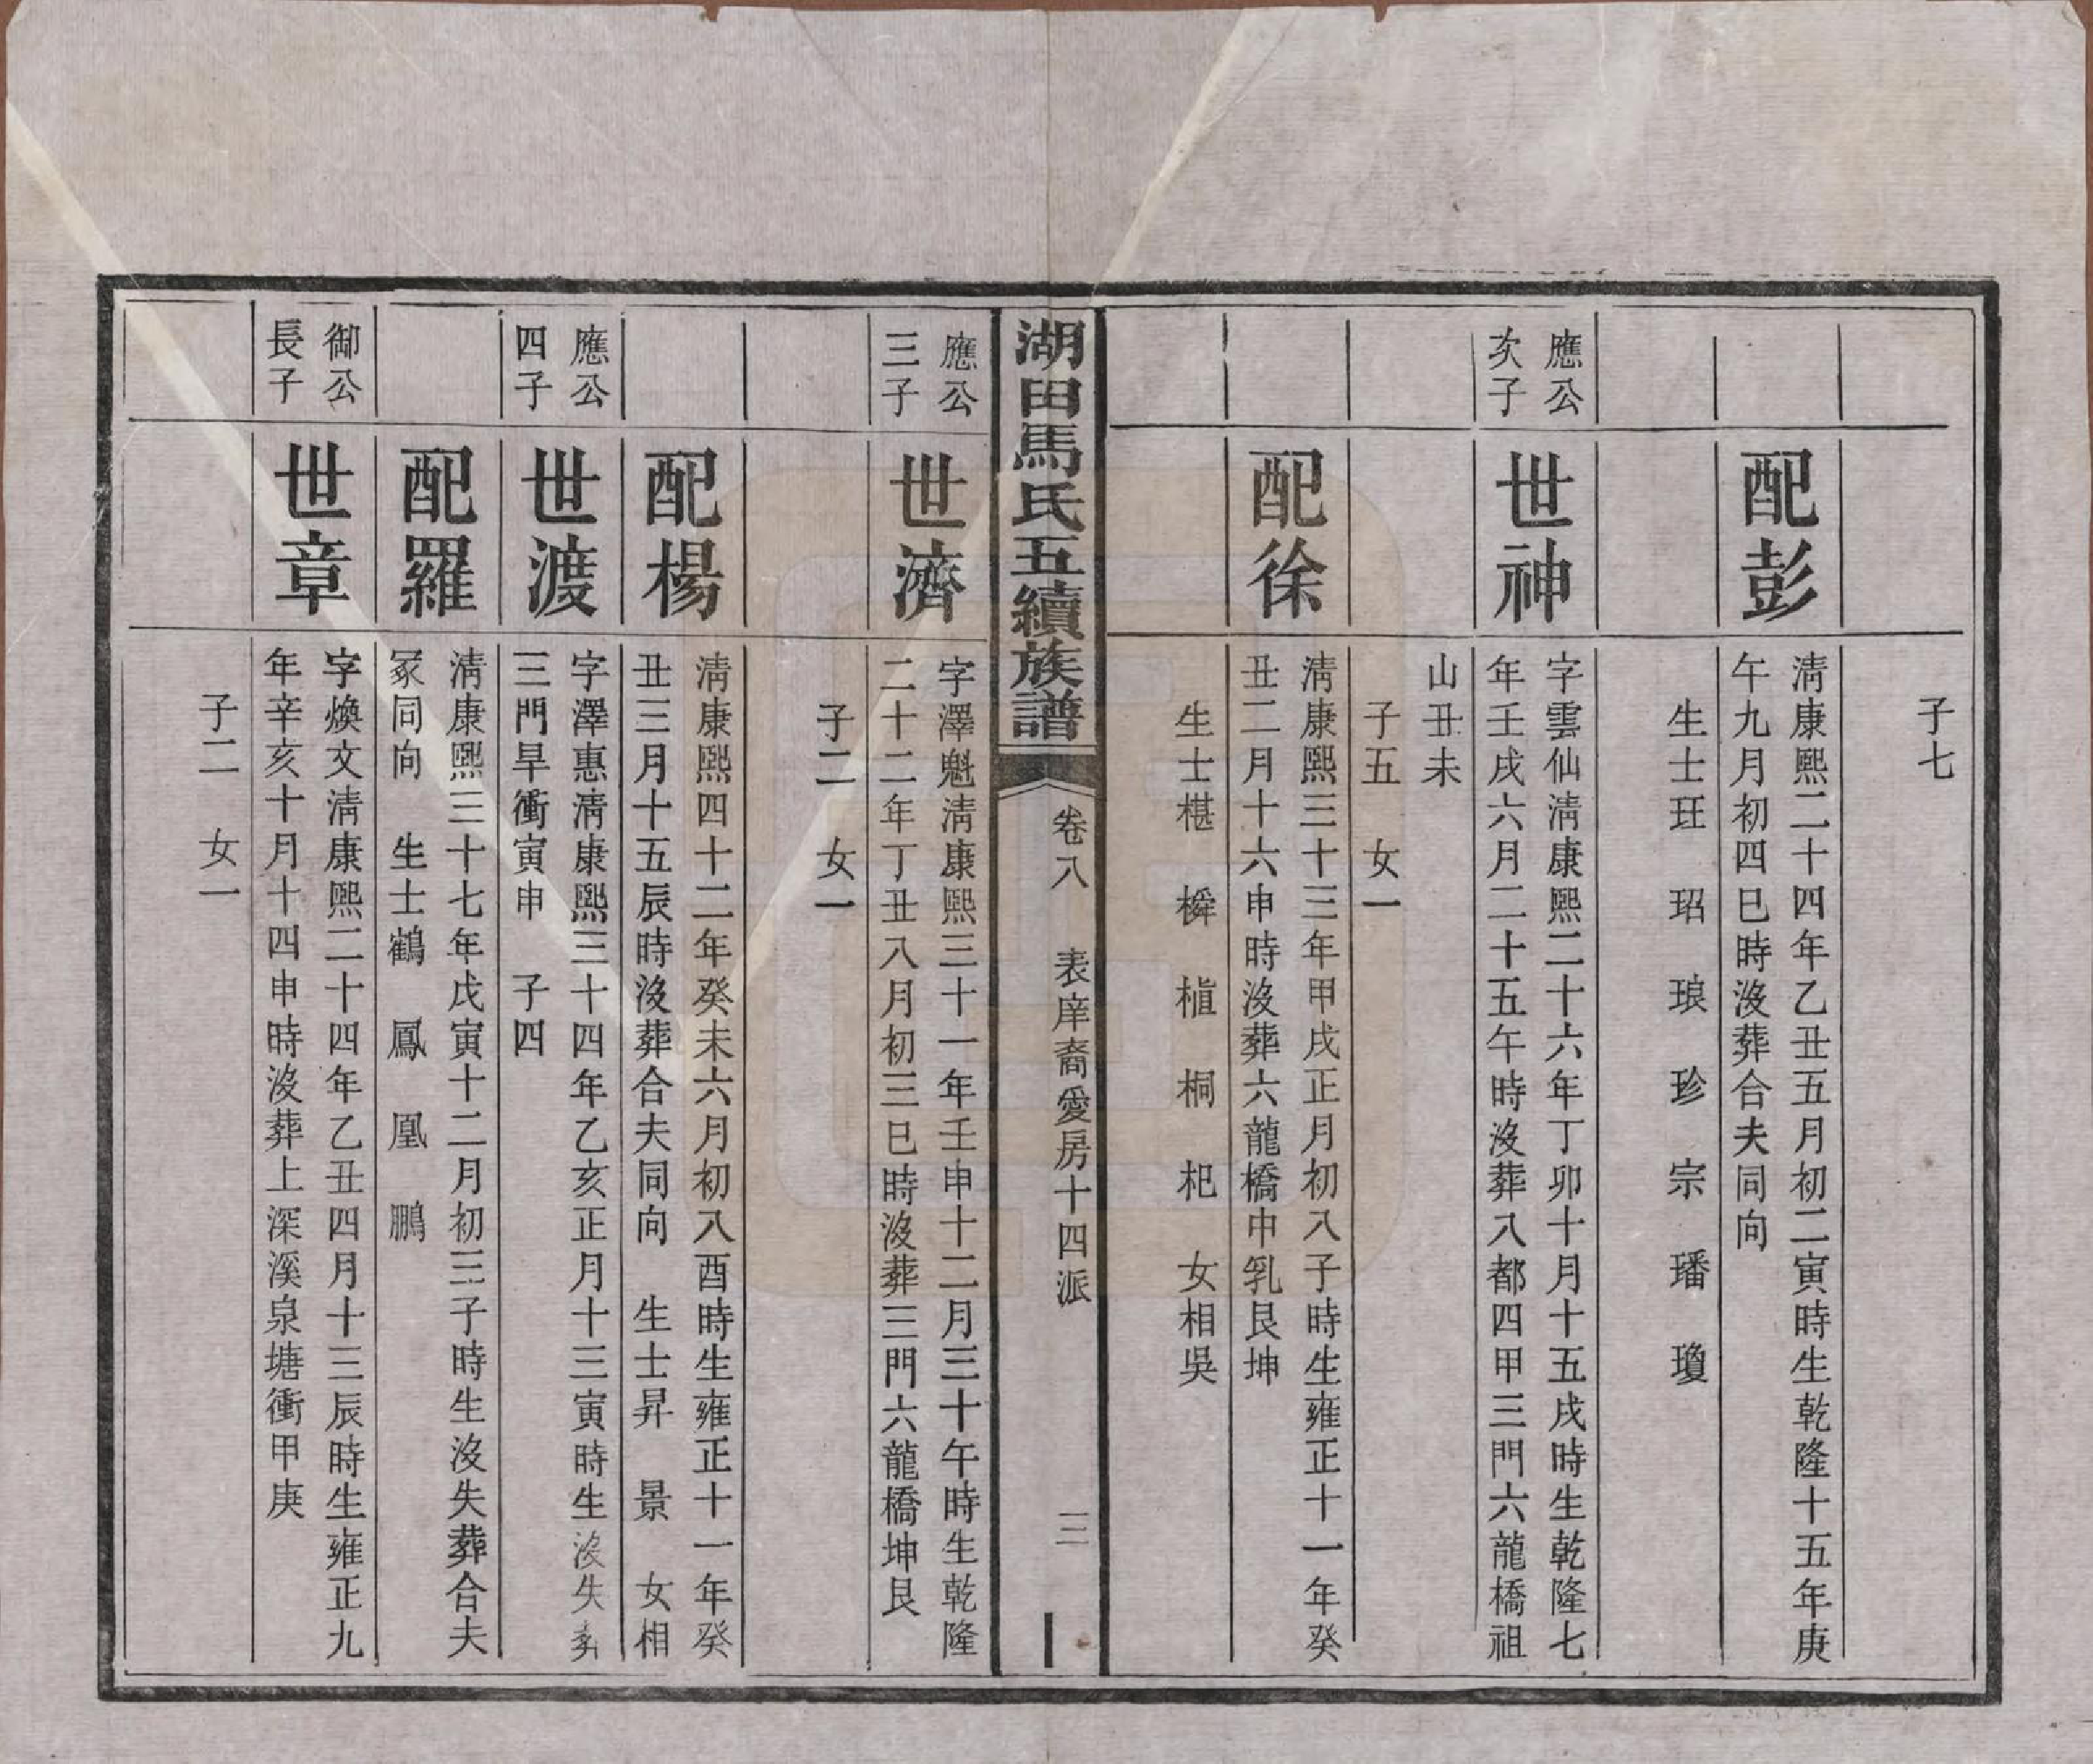 子七
配彭
清康熙二十四年乙丑五月初二寅時生乾隆十五年庚
午九月初四巳時沒葬合夫同向
生士玨 玿 琅 珍 宗 璠 瓊
應公
次子
世神
字雲仙清康熙二十六年丁卯十月十五戌時生乾隆七
年壬戌六月二十五午時沒葬八都四甲三門六龍橋祖
山丑未
子五 女一
配徐
清康熙三十三年甲戌正月初八子時生雍正十一年癸
丑二月十六申時沒葬六龍橋中乳艮坤
生士椹 橓 植 桐 杞 女相吳
湖田馬氏五續族譜
卷八 表庠裔愛房十四派 三
應公
三子
世濟
字澤魁清康熙三十一年壬申十二月三十午時生乾隆
二十二年丁丑八月初三巳時沒葬三門六龍橋坤艮
子二 女一
配楊
清康熙四十二年癸未六月初八酉時生雍正十一年癸
丑三月十五辰時沒葬合夫同向 生士昇 景 女相
應公
四子
世渡
字澤惠清康熙三十四年乙亥正月十三寅時生沒失葬
三門旱衝寅申 子四
配羅
清康熙三十七年戊寅十二月初三子時生沒失葬合夫
冢同向 生士鶴 鳳 凰 鵬
御公
長子
世章
字煥文清康熙二十四年乙丑四月十三辰時生雍正九
年辛亥十月十四申時沒葬上深溪泉塘衝甲庚
子二 女一